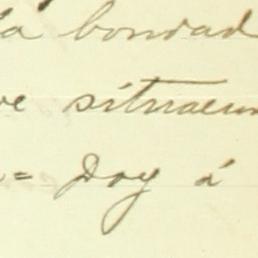 la bondad
ve situacion
= Doy á